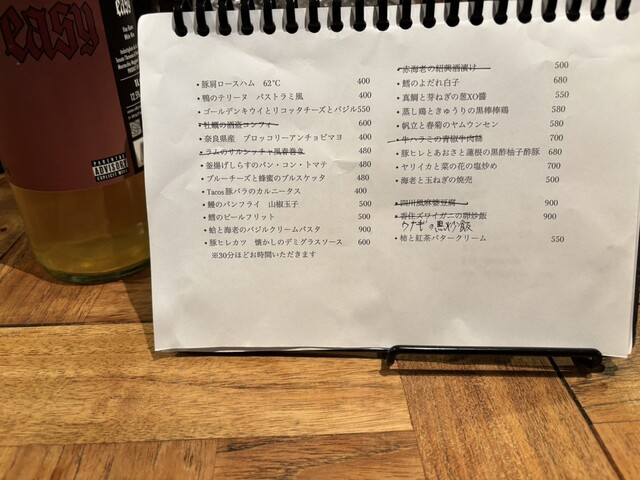 easy
easy
PARENTAL
ADVISORY
EXPLICIT WINE
・豚肩ロースハム 62℃ 400
・鴨のテリーヌ パストラミ風 400
・ゴールデンキウイとリコッタチーズとバジル 550
・牡蠣の酒盗コンフィー 600
・奈良県産 ブロッコリーアンチョビマヨ 400
・ラムのサルシッチャ風春巻き 400
・釜揚げしらすのパン・コン・トマテ 480
・ブルーチーズと蜂蜜のブルスケッタ 480
・Tacos豚バラのカルニータス 400
・鰻のパンフライ 山椒玉子 500
・鱈のビールフリット 500
・蛤と海老のバジルクリームパスタ 900
・豚ヒレカツ 懐かしのデミグラスソース 600
※30分ほどお時間いただきます
・赤海老の紹興酒漬け 500
・鱈のよだれ白子 680
・真鯛と芽ねぎの葱XO醬 550
・蒸し鶏ときゅうりの黒棒棒鶏 580
・帆立と春菊のヤムウンセン 580
・牛ハラミの青椒牛肉麺 700
・豚ヒレとあおさと蓮根の黒酢柚子酢豚 680
・ヤリイカと菜の花の塩炒め 700
・海老と玉ねぎの焼売 500
・四川風麻婆豆腐 900
・香住ズワイガニの卵炒飯 900
ウナギの黒炒飯
・柿と紅茶バタークリーム 550